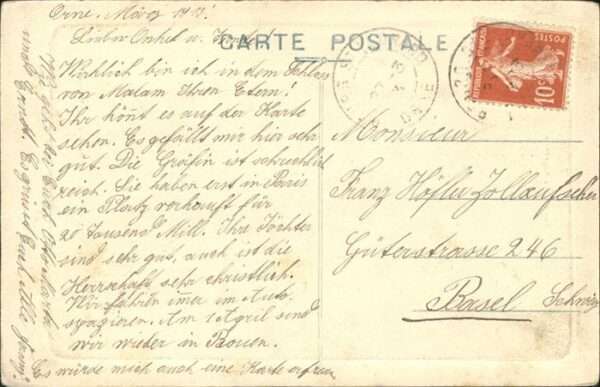 Orne. März 1912.
Lieber Onkel u.
CARTE POSTALE
Wirklich bin ich in dem Schloss
von Madam
Ihr könnt es auf der Karte
sehen. Es gefällt mir hier sehr
gut. Die Gräfin ist schrecklich
reich. Sie haben erst in Paris
ein Platz verkauft für
20 Tausend Mill. Ihre Töchter
sind sehr gut, auch ist die
Herrschaft sehr christlich.
Wir fahren imer im Auto
spazieren. Am 1 April sind
wir wieder in Rouen.
Es würde mich auch eine Karte erfreuen
Wie geht es bei Euch
und Ernst. Es grüsst Euch Alle
POSTES
RÉPUBLIQUE FRANÇAISE
10c
Monsieur
Franz Höfler Zollaufseher
Güterstrasse 246
Basel Schweiz